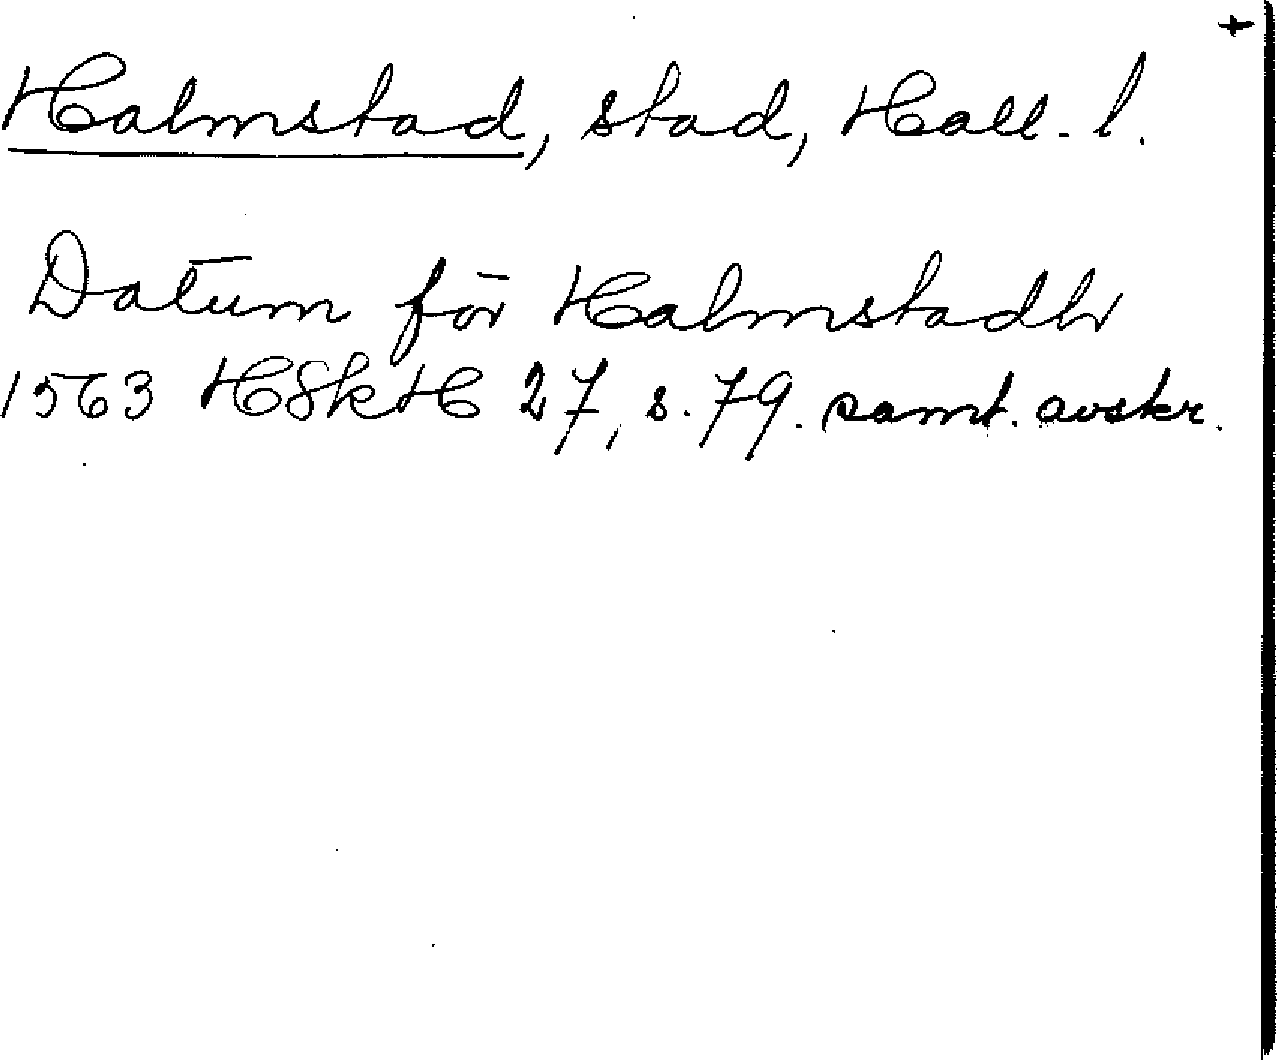 +
Halmstad, stad, Hall. l.
Datum för Halmstadh
1563 HSkH 27, s. 79. samt. avskr.